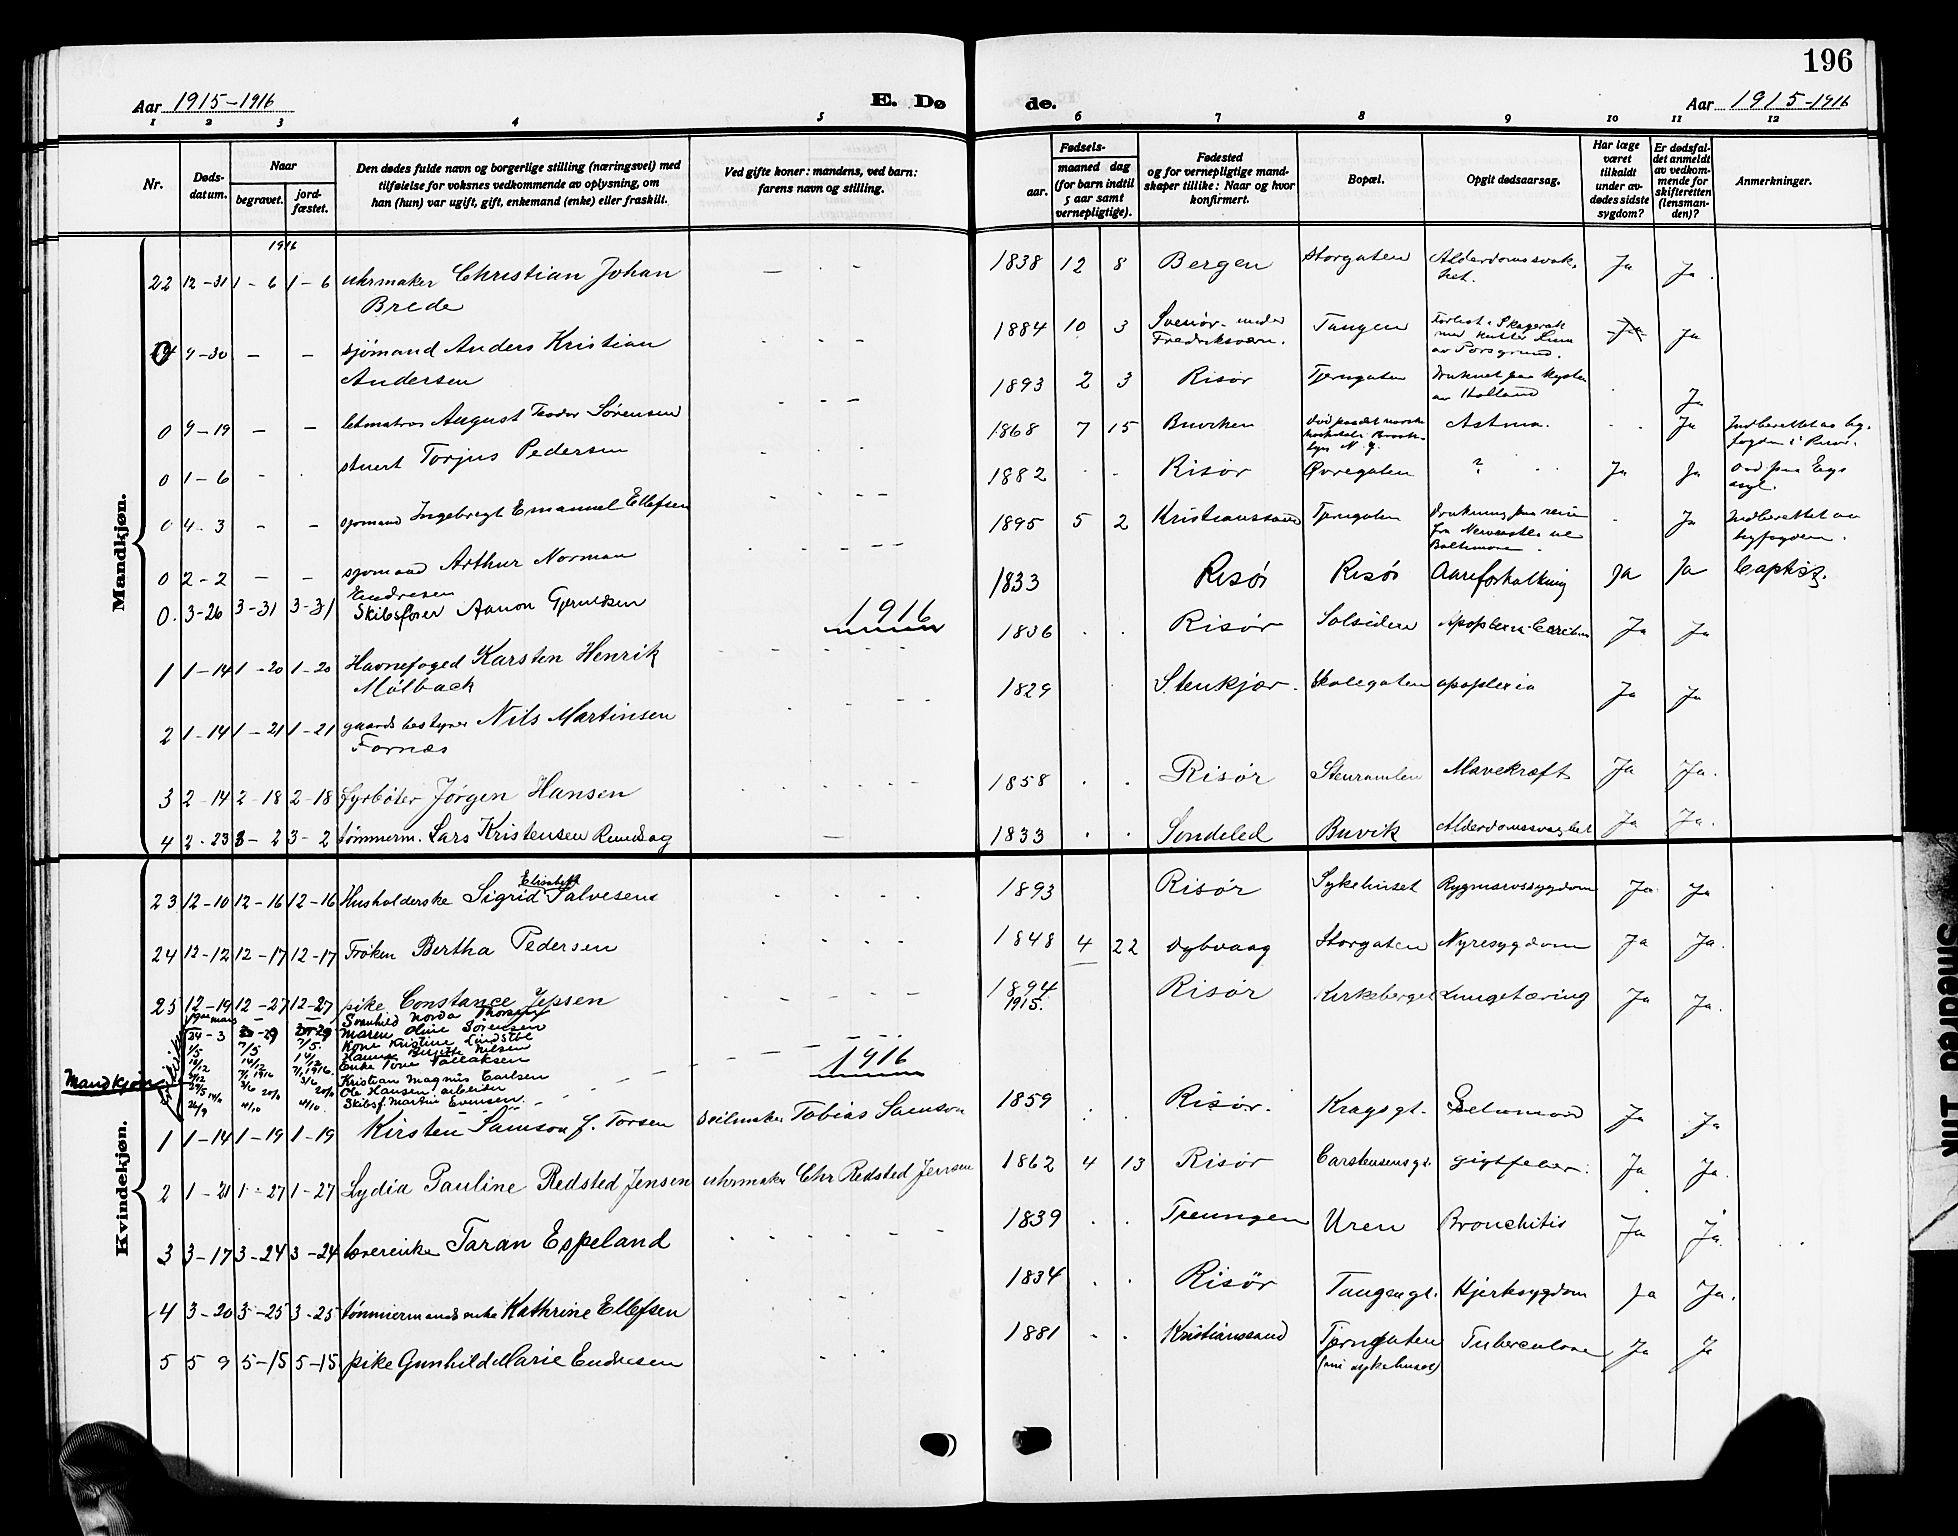 196
Aar 1915-1916 E. Dø de. Aar 1915-1916
1 2 3 4 5 6 7 8 9 10 11 12
Nr.
Døds-datum.
Naar
begravet. jord-fæstet.
Den dødes fulde navn og borgerlige stilling (næringsvei) med
tilføielse for voksnes vedkommende av oplysning, om
han (hun) var ugift, gift, enkemand (enke) eller fraskilt.
Ved gifte koner: mandens, ved barn:
farens navn og stilling.
Fødsels-
aar. maaned dag
(for barn indtil
5 aar samt
vernepligtige).
Fødested
og for vernepligtige mand-
skaper tillike: Naar og hvor
konfirmert.
Bopæl.
Opgit dødsaarsag.
Har læge
været
tilkaldt
under av-
dødes sidste
sygdom?
Er dødsfal-
det anmeldt
av vedkom-
mende for
skifteretten
(lensman-
den)?
Anmerkninger.
Mandkjøn.
1916
22 12-31 1-6 1-6 uhrmaker Christian Johan Brede 1838 12 8 Bergen Storgaten Alderdomssvak. het. Ja Ja.
9-30 - - sjømand Anders Kristian Andersen 1884 10 3 Fredriksværn. Tangen Forlist i Skagerak med Kutter av Porsgrund. Ja
0 9-19 - - letmatros August Teodor Sørensen 1893 2 3 Risør Tjerngaten Druknet paa kysten av Holland Ja
0 1-6 - stuert Torjus Pedersen 1868 7 15 Buviken N. Y. Astma. Ja Indberettet
0 4-3 - - sjømand Ingebregt Emanuel Ellefsen 1882 Risør Øvregaten ? Ja Ja
0 2-2 - - sjømand Arthur Norman Endresen 1895 5 2 Kristianssand Tjerngaten Drukning paa reise fra Newcastle til Baltimore. Ja Indberettet byfogden.
0. 3-26 3-31 3-31 Skibsfører Aanon Gjeruldsen 1833 Risør Risør Aareforkalkning Ja Ja baptist.
1916
1 1-14 1-20 1-20 Havnefoged Karsten Henrik Mölback 1836 Risør Solsiden Apoplexia Cerebri Ja Ja
2 1-14 1-21 1-21 gaardsbestyrer Nils Martinsen Fornæs 1829 Stenkjær. Skolegaten apoplexia Ja Ja
3 2-14 2-18 2-18 fyrbøter Jørgen Hansen 1858 Risør Stenramlen Mavekræft Ja Ja.
4 2-23 3-2 3-2 tømmerm. Lars Kristensen 1833 Søndeled Buvik Alderdomssvaghet Ja Ja.
Kvindekjøn.
23 12-10 12-16 12-16 Husholderske Sigrid Elisabeth Salvesen 1893 Risør Sykehuset Rygmarvssygdom Ja Ja
24 12-12 12-17 12-17 Frøken Bertha Pedersen 1848 4 22 Dybvaag Storgaten Nyresygdom Ja Ja.
25 12-19 12-27 12-27 pike Constance Jepsen 1894 Risør Kirkeberget Lungetæring Ja Ja.
1915.
Svanhild Norda Thorsen
24-3 Maren Oline Sørensen
1/5 7/5 7/5. Kone Kristine Lindstøl
14/12 14/12 Hanna Birgitte Nilsen
7/1 1916 7/1 1916. Enke Tone Tallaksen
3/6 3/6 Kristian Magnus Carlsen
Ole Hansen arbeider
26/9 4/10 4/10. Skibsf. Martin Evensen.
Mandkjøn
1916
1 1-14 1-19 1-19 Kirsten Samson f. Torsen Seilmaker Tobias Samson 1859 Risør. Kragsgt. Ja Ja
2 1-21 1-27 1-27 Lydia Pauline Redsted Jensen uhrmaker Chr Redsted Jensen 1862 4 13 Risør Carstensensgt. gigtfeber. Ja Ja.
3 3-17 3-24 3-24 Taran Espeland 1839 Treungen Uren Bronchitis Ja Ja.
4 3-20 3-25 3-25 tømmermands enke Kathrine Ellefsen 1834 Risør Tangengt. Hjertesygdom Ja Ja.
5 5 9 5-15 5-15 pike Gunhild Marie Endresen 1881 Kristianssand Tjerngaten Tuberculose Ja Ja